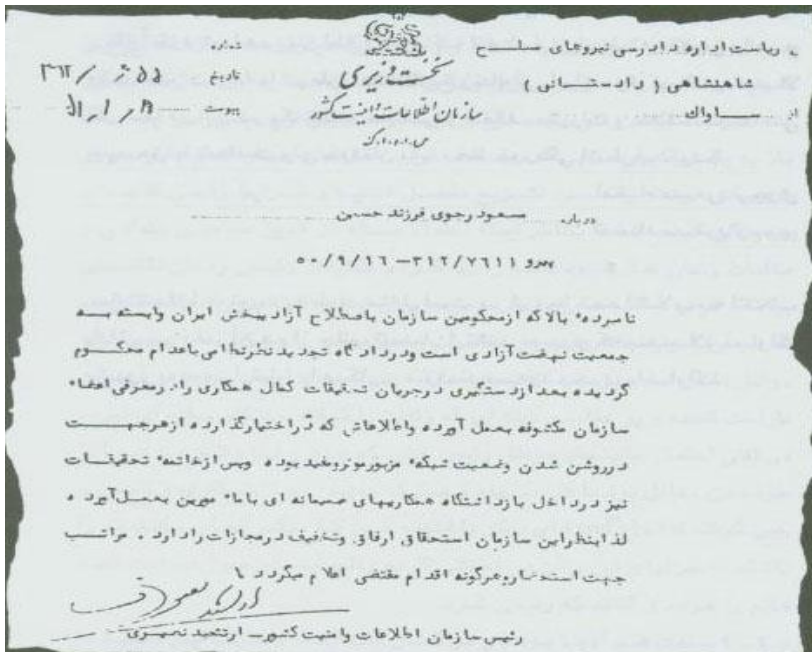 به ریاست اداره دادرسی نیروهای مسلح
شاهنشاهی ( دادستانی )
از ساواک
نخست وزیری
سازمان اطلاعات و امنیت کشور
س.ا.و.ا.ک
شماره
تاریخ
پیوست
درباره مسعود رجوی فرزند حسین
پیرو ۳۱۲/۷۶۱۱ - ۵۰/۹/۱۶
نامبرده بالا که از محکومین سازمان باصطلاح آزادیبخش ایران وابسته به
جمعیت نهضت آزادی است و در دادگاه تجدید نظر نظامی باعدام محکوم
گردیده بعد از دستگیری در جریان تحقیقات کمال همکاری را در معرفی اعضاء
سازمان مکشوفه بعمل آورده و اطلاعاتی که در اختیار گذارده از هر جهت
در روشن شدن وضعیت شبکه مزبور موثر و مفید بوده و پس از خاتمه تحقیقات
نیز در داخل بازداشتگاه همکاریهای صمیمانه ای با مامورین بعمل آورده
لذا بنظر این سازمان استحقاق ارفاق و تخفیف در مجازات را دارد . مراتب
جهت استحضار و هرگونه اقدام مقتضی اعلام میگردد
رئیس سازمان اطلاعات و امنیت کشور - ارتشبد نصیری